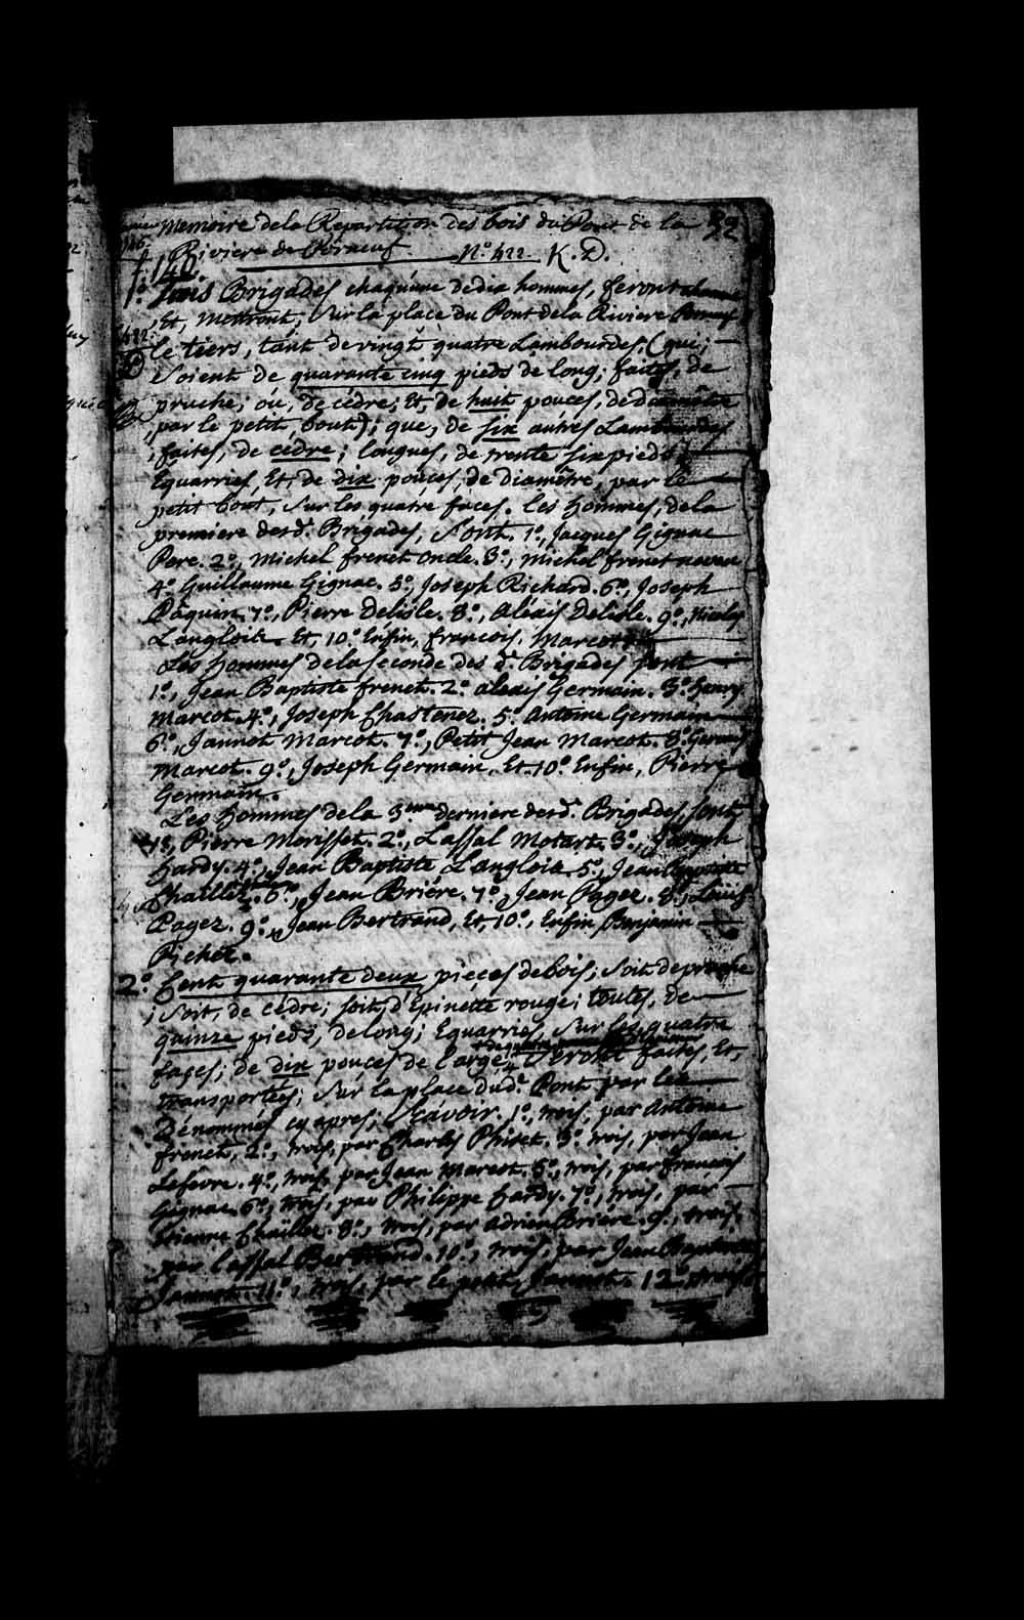 Memoire de la Repartition des bois du Pont de la 32
Riviere de N.º 422. K. D.
f. 140.
1.º Trois Brigades chaquúne de dix hommes, feront
Et, Mettront, sur la place du Pont de la Riviere
422.
le tiers, tant de vingt quatre Lambourdes, (qui;
soient de quarante cinq pieds de long; faites, de
pruche; oú, de cédre; Et, de huit pouces, de diamêtre
par le petit bout); que, de six autres Lambourdes
faites, de cedre; longues, de trente six pieds;
Equarries, Et, de dix pouces, de diamêtre, par le
petit bout, sur les quatre faces. Les hommes, de la
premiere desd. Brigades, sont. 1º, Jacques Gignac
Pere. 2º, Michel frenet oncle. 3º, Michel frenet neveu
4º Guillaume Gignac. 5º, Joseph Richard. 6º, Joseph
Páquin. 7º, Pierre Delisle. 8º, Aléxis Delisle. 9º, Nicolas
Langlois. Et, 10º Enfin, francois, Marcot
Les hommes de la seconde des d. Brigades sont
1º, Jean Baptiste frenet. 2º alexis Germain. 3º henry
Marcot. 4º, Joseph Chastenez. 5º Antoine Germain
6º, Jannot Marcot. 7º, Petit Jean Marcot. 8º
Marcot. 9º, Joseph Germain, Et, 10º Enfin, Pierre
Germain.
Les hommes de la 3.eme derniere desd. Brigades, sont,
1º, Pierre Morisset. 2º, Lassal Motart. 3º, Joseph
hardy. 4º, Jean Baptiste Langlois. 5º, Jean Baptiste
Chaillez. 6º, Jean Briére. 7º, Jean Pagez. 8º, Loüis
Pagez. 9º, Jean Bertrand, Et, 10º, Enfin, Benjamin
Pichet.
2º Cent quarante deux pieces de bois; soit de pruche
; soit, de cédre; soit, d'Epinette rouge; toutes, de
quinze pieds, de long; Equarries, sur les quatre
faces; de dix pouces de large; seront faites, Et,
transportées; sur la place dud. Pont par les
Dénommés cy apres; Scavoir. 1º, trois, par Antoine
frenet, 2º, trois, par Charles Phiset. 3º trois, par Jean
Lefevre. 4º, trois, par Jean Marcot. 5º, trois, par francois
Gignac. 6º, trois, par Philippe hardy. 7º, trois, par
Etienne Chaillez. 8º, trois, par Adrien Briére. 9º, trois,
par Lassal Bertrand. 10º, trois, par Jean Baptiste
Jannot. 11º, trois, par le petit Jannot. 12º trois